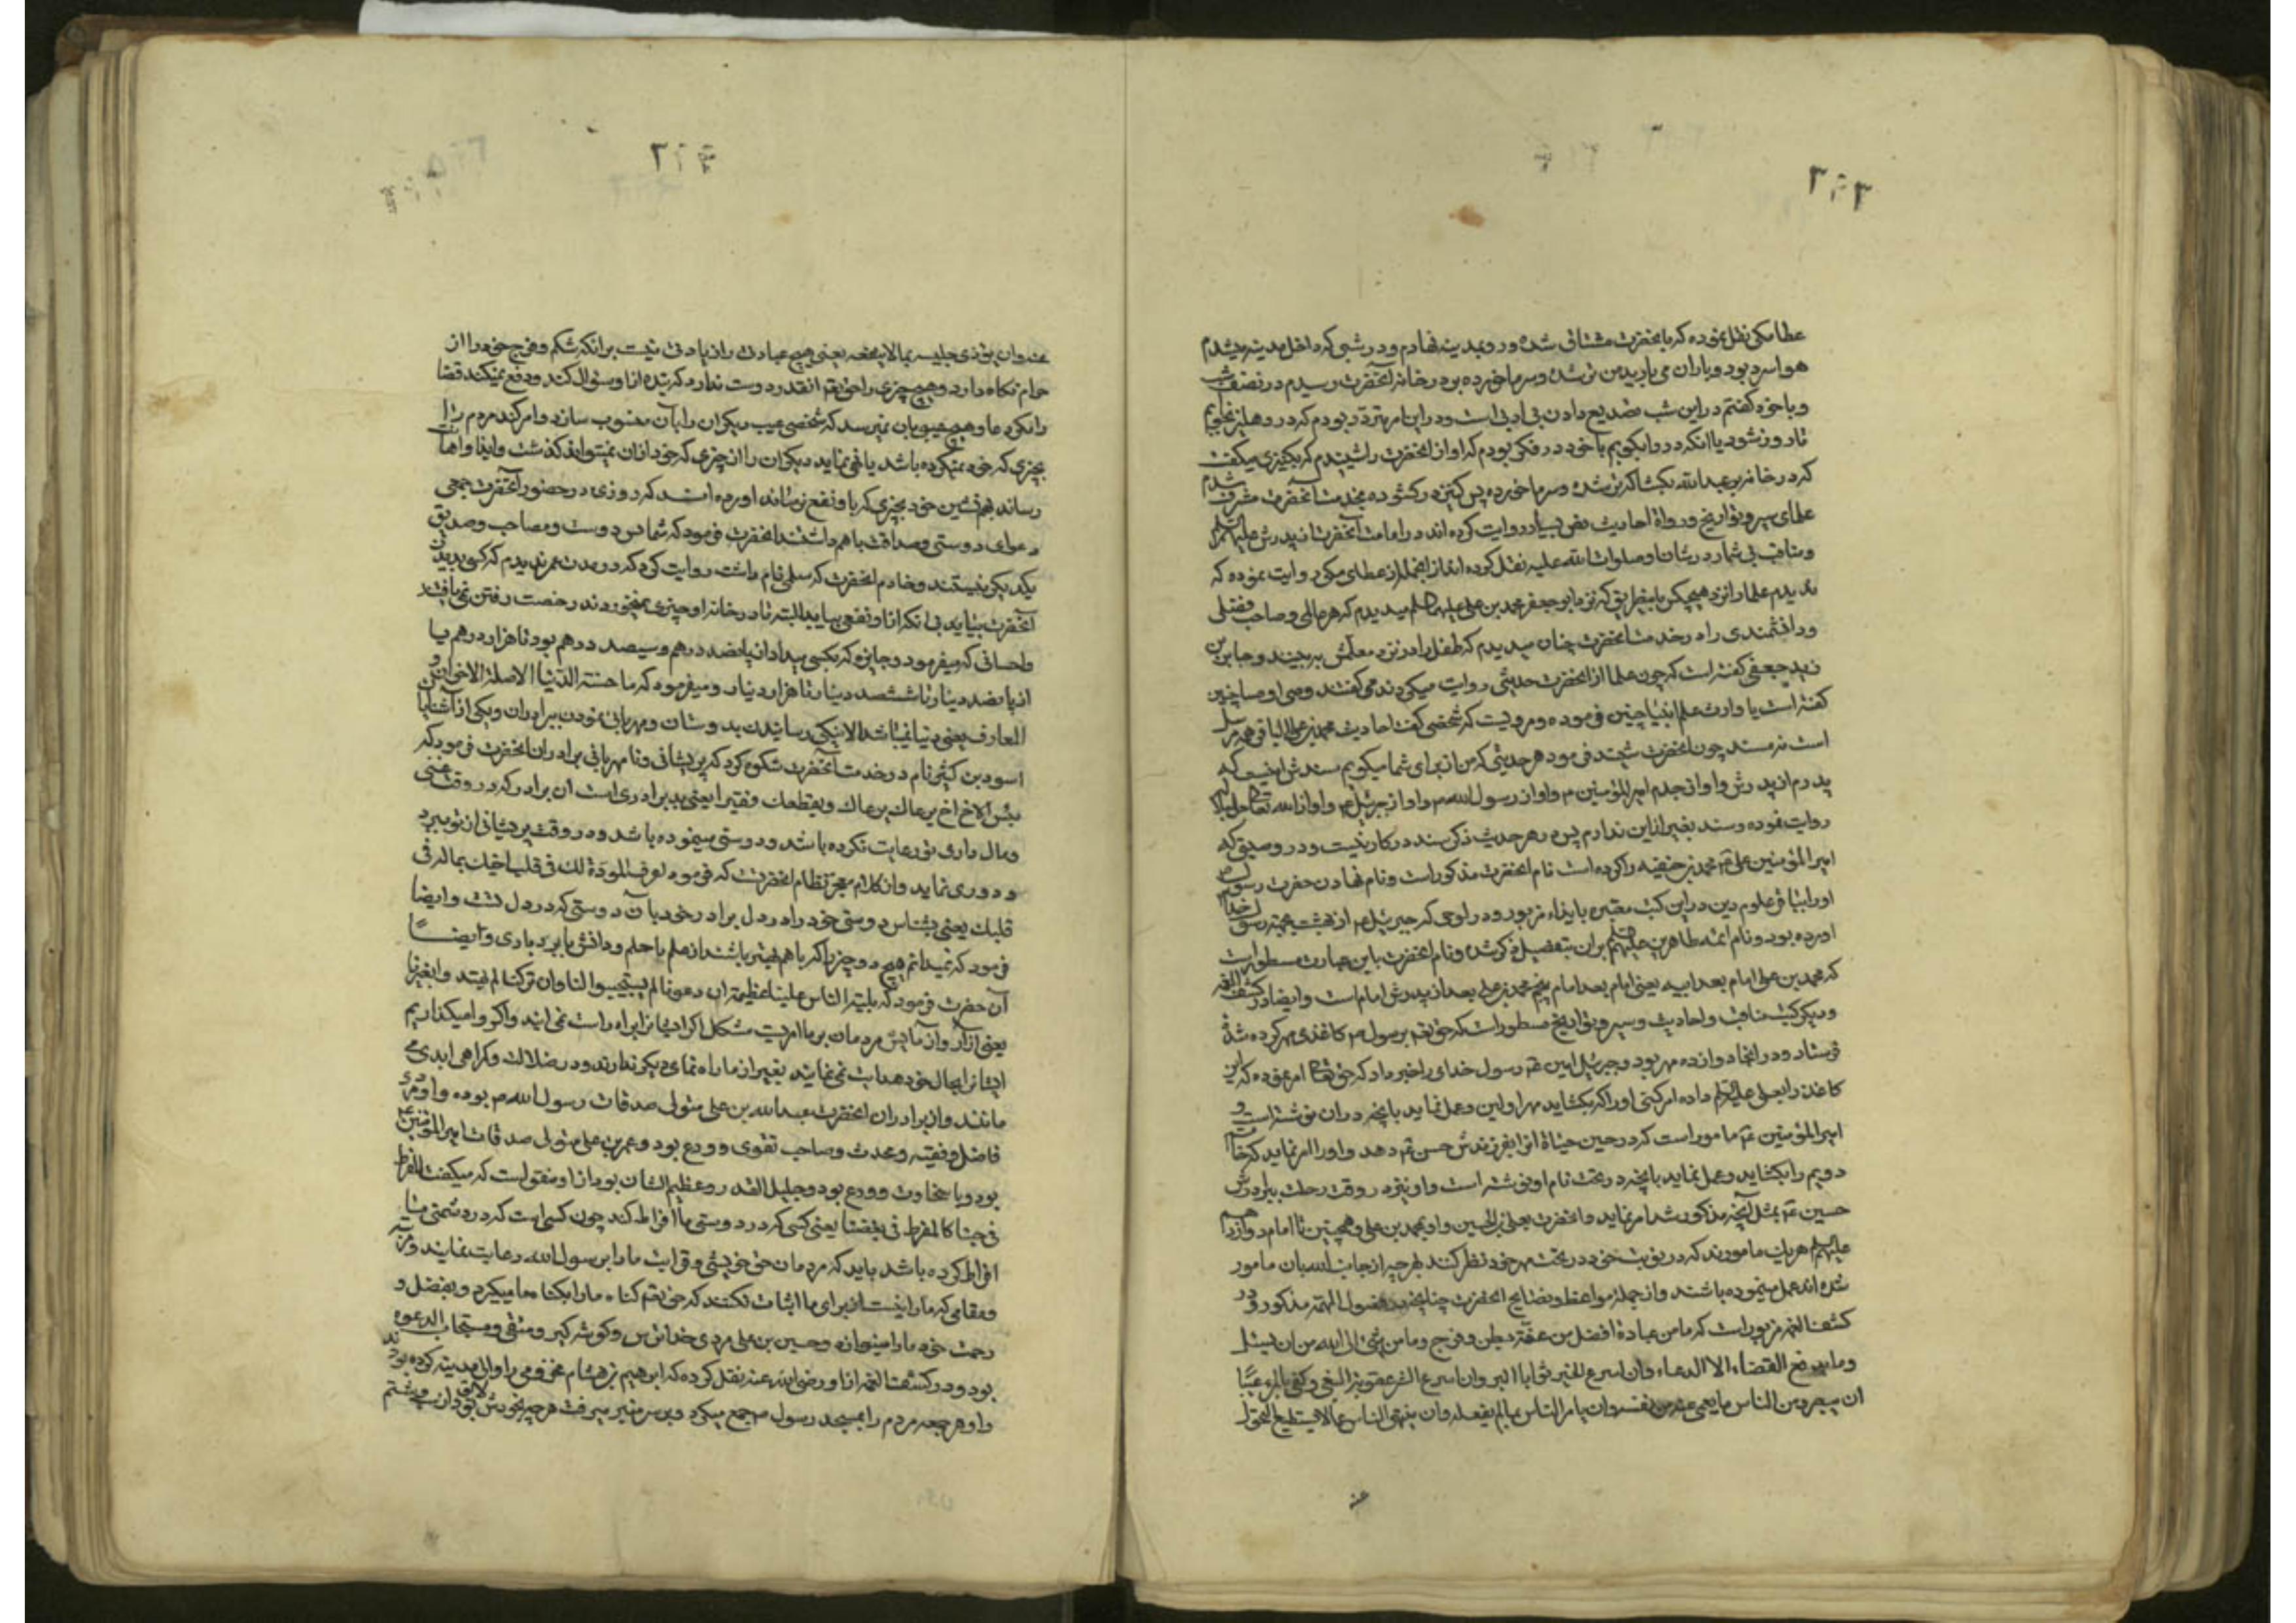 عطا مکی نقل نموده که بانحضرت مشتاق شده رو بمدینه نهادم و در شبی که داخل مدینه میشدم
هوا سرد بود و باران می بارید من تر شده و سرما خورده بدر خانه آنحضرت رسیدم در نصف شب
و با خود گفتم در این شب تصدیع دادن بی ادبی است و در این امر متردد بودم که در دهلیز بخوابم
تا روز شود یا آنکه در را بکوبم با خود در فکر بودم که اواز انحضرت را شنیدم که بکنیزی میگفت
که در خانه بر عبدالله بگشا که تر شده و سرما خورده پس کنیز در گشوده بخدمت آنحضرت مشرف شدم
علمای سیر و تواریخ و رواة احادیث نص بسیار روایت کرده اند در امامت آنحضرت از پدرش علیهما السلام
و مناقب بی شمار در شان او صلوات الله علیه نقل کرده اند از انجمله از عطای مکی روایت نموده که
ندیدم علما را نزد هیچکس بانطریق که نزد ابو جعفر محمد بن علی علیهما السلام میدیدم که هر عالمی و صاحب فضلی
و دانشمندی را در خدمت انحضرت چنان میدیدم که طفل را در نزد معلمش به بینید و جابر بن
یزید جعفی گفته است که چون علما از انحضرت حدیثی روایت میکردند می گفتند وصی اوصیا چنین
گفته است یا وارث علم انبیا چنین فرموده و مرویست که شخصی گفت احادیث محمد بن علی الباقر مرسل
است نه مسند چون انحضرت شنید فرمود هر حدیثی که من از برای شما میگویم سندش اینست که
پدرم از پدرش و او از جدم امیر المؤمنین ۴ و او از رسول الله ص و او از جبرئیل ۴ و او از الله تعالی
روایت نموده و سند بغیر از این ندارم پس در هر حدیث ذکر سند در کار نیست و در وصیتی که
امیر المؤمنین علی ع محمد بن حنفیه را کرده است نام انحضرت مذکور است و نام نهادن حضرت رسول
او را بباقر علوم دین در این کتب معتبره باینداء مزبور و در لوحی که جبرئیل ۴ از بهشت بجهة رسول خدا
اورده بود و نام ائمه طاهرین علیهم السلام بران بتفصیل ذکر شده و نام انحضرت باین عبارت مسطور است
که محمد بن علی امام بعد ابیه یعنی امام بعد امام پنجم محمد بن علی بعد از پدرش امام است و ایضا در کشف الغمه
و دیگر کتب مناقب و احادیث و سیر و تواریخ مسطور است که حق تعالی برسول ص کاغذی مهر کرده شده
فرستاد و در انجا دوازده مهر بود و جبرئیل امین ع رسول خدای را خبر داد که حق تعالی امر نموده که این
کاغذ را بعلی علیه السلام داده امر کنی او را که بگشاید مهر اولین و عمل نماید بانچه در ان نوشته است و
امیر المؤمنین ع مامور است که در حین حیاة انرا بفرزندش حسن ع دهد و او را امر نماید که خاتم
دویم را بگشاید و عمل نماید بانچه در تحت نام او نوشته است و او نیز در وقت رحلت ببرادرش
حسین ع بمثل آنچه مذکور شد امر نماید و انحضرت بعلی بن الحسین و او بمحمد بن علی و همچنین تا امام دوازدهم
علیهم السلام هر یک مامورند که در نوبت خود در تحت مهر خود نظر کنند بهر چه از جانب الله بان مامور
شده اند عمل مینموده باشند و از جمله مواعظ و نصایح انحضرت چنانچه در فصول المهمه مذکور و در
کشف الغمه مزبور است که ما من عبادة افضل من عفة بطن و فرج و ما من شئ احب الی الله من ان یسئل
و ما یدفع القضاء الا الدعاء و ان اسرع الخیر ثوابا البر و ان اسرع الشر عقوبة البغی و کفی بالمرء عیبا
ان یبصر من الناس ما یعمی عنه من نفسه و ان یامر الناس بما لم یفعله و ان ینهی الناس عما لا یستطیع التحول
عنه
عنه و ان یؤذی جلیسه بما لا یعنیه یعنی هیچ عبادت را زیادتی نیست بر انکه شکم و فرج خود را از
حرام نگاه دارد و هیچ چیزی را حق تعالی انقدر دوست ندارد که بنده از او سئوال کند و دفع نمیکند قضا
را مگر دعا و هیچ عیبی بان نمیرسد که شخصی عیب دیگران را بان منسوب سازد و امر کند مردم را
بچیزی که خود نمیکرده باشد یا نهی نماید دیگران را از چیزی که خود از ان نمیتواند گذشت و ایذا و اهانت
رساند بهم نشین خود بچیزی که باو نفع نرساند اورده اند که روزی در حضور آنحضرت جمعی
دعوای دوستی و صداقت باهم داشتند انحضرت فرمود که شما دوست و مصاحب و صدیق
یکدیگر نیستند و خادم انحضرت که سلمی نام داشت روایت کرد که در مدت عمر ندیدم که کسی بدیدن
آنحضرت بیاید بی انکه از او نفعی بیابد البته تا در خانه او چیزی نمیخوردند رخصت رفتن نمی یافتند
و احسانی که میفرمود و جایزه که بکسی میداد از پانصد درهم و سیصد درهم بود تا هزار درهم یا
از پانصد دینار تا ششصد دینار تا هزار دینار و میفرمود که ما حسنة الدنیا الا صلة الاخوان و
المعارف یعنی دنیا نمیباشد الا نیکی رسانیدن بدوستان و مهربانی نمودن ببرادران و یکی از آشنایان
اسود بن کثیر نام در خدمت آنحضرت شکوه کرد که پریشانی و نامهربانی برادران انحضرت فرمود که
بئس الاخ اخ یرعاک غنیا و یقطعک فقیرا یعنی بد برادری است ان برادر که در وقت غنی
و مال داری تو رعایت کرده باشد و دوستی مینموده باشد و در وقت پریشانی از تو ببرد
و دوری نماید و از کلام معجز نظام انحضرت که فرموده اعرف المودة لک فی قلب اخیک بما له فی
قلبک یعنی بشناس دوستی خود را در دل برادر خود بان دوستی که در دل تست و ایضا
فرمود که نمیدانم هیچ دو چیز را که باهم بهتر باشند از علم با حلم و دانش با بردباری و ایضا
آن حضرت فرمود که بلیة الناس علینا عظیمة ان دعوناهم لم یستجیبوا لنا و ان ترکناهم لم یهتدوا بغیرنا
یعنی آزار و آزمایش مردمان بر ما امریست مشکل اگر ایشانرا براه راست می خوانیم و اگر وا میگذاریم
ایشانرا بحال خود هدایت نمی نمایند بغیر از ما راه نمای دیگر ندارند و در ضلالت و گمراهی ابدی
مانند و از برادران انحضرت عبدالله بن علی متولی صدقات رسول الله ص بوده و او مردی
فاضل و فقیه و محدث و صاحب تقوی و ورع بود و عمر بن علی متولی صدقات امیر المؤمنین ع
بود و با سخاوت و ورع بود و جلیل القدر و عظیم الشان بود از او منقول است که میگفت المفرط
فی حبنا کالمفرط فی بغضنا یعنی کسی که در دوستی ما افراط کند چون کسی است که در دشمنی ما
افراط کرده باشد باید که مردمان حق خویشی و قرابت ما را برسول الله رعایت نمایند و مرتبه
و مقامی که ما را نیست از برای ما اثبات نکنند که حق تعالی گناه ما را بگناه ما میگیرد و بفضل و
رحمت خود ما را مینوازد و حسین بن علی مردی خدا ترس و گوشه گیر و متقی و مستجاب الدعوه
بود و در کشف الغمه از او رضی الله عنه نقل کرده که ابرهیم بن هشام مخزومی را والی مدینه کرده بودند
و او هر جمعه مردم را بمسجد رسول ص جمع میکرد و بر سر منبر میرفت هر چه بخودش لایق بود از سب و شتم